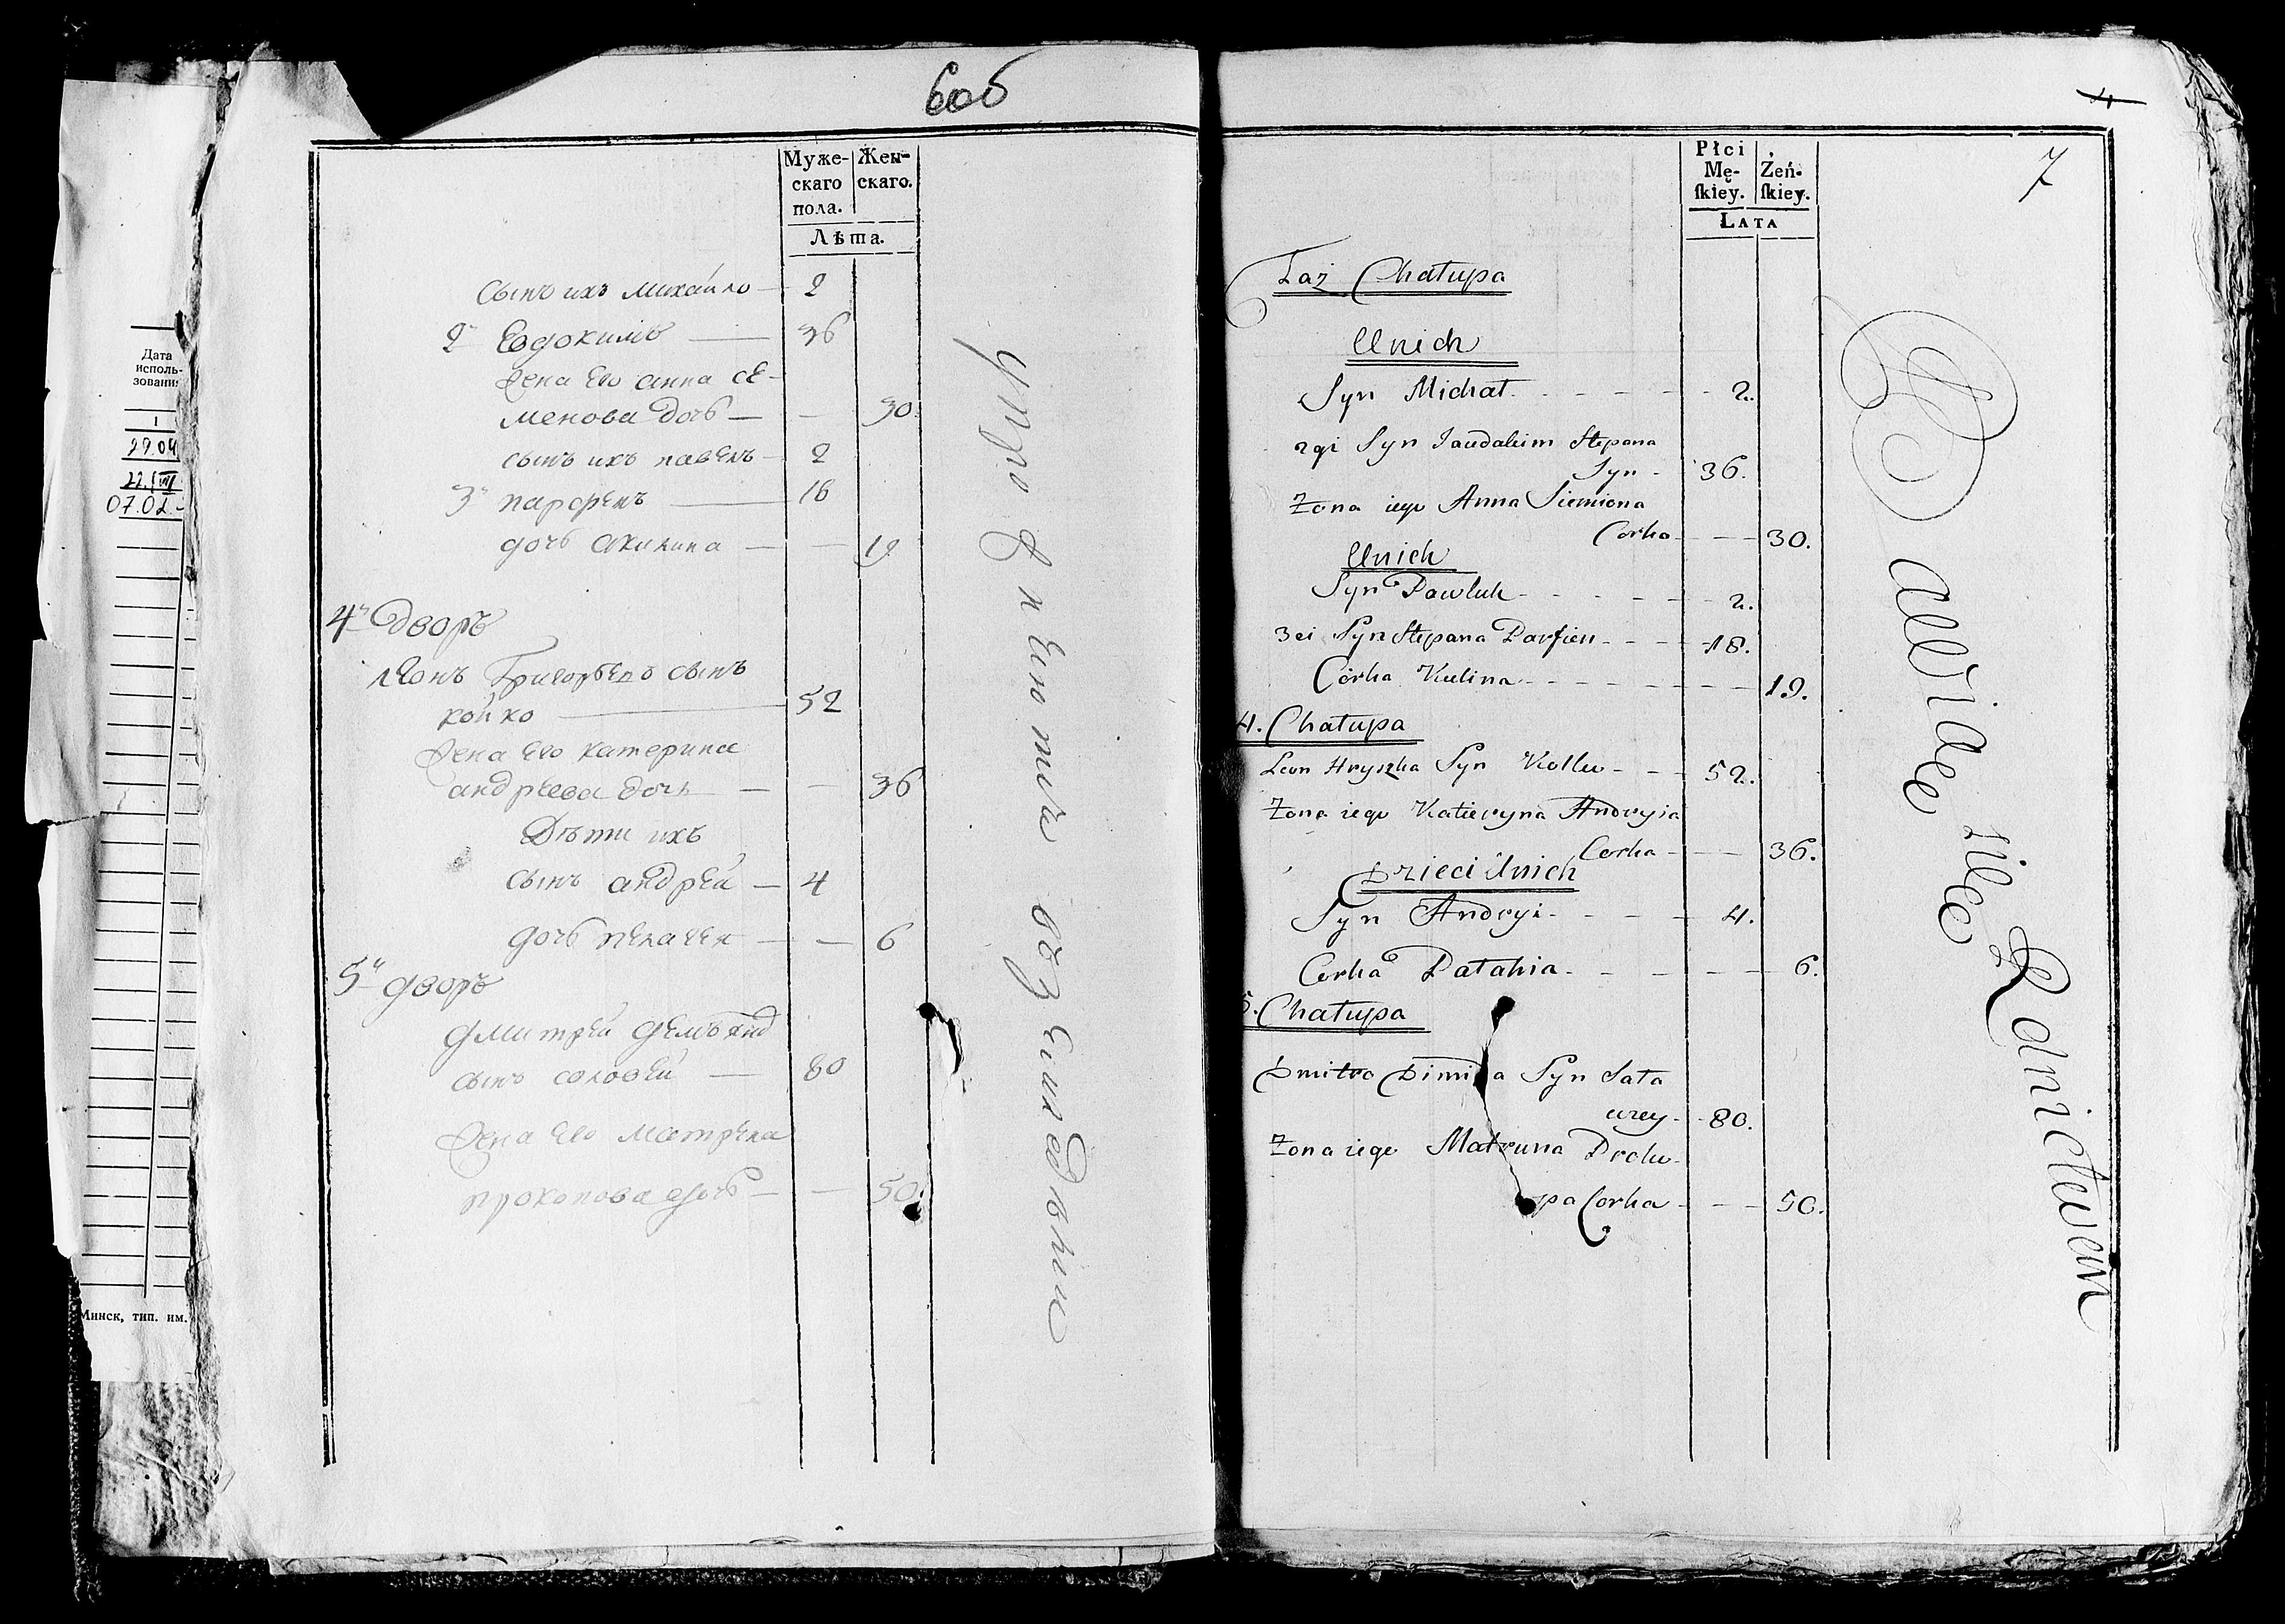 Дата
исполь-
зования
1
29.04
22.VIII
07.02.
Минск, тип. им.
6об
Муже-
скаго
пола.
Жен-
скаго.
Лѣта.
сынъ ихъ михайло — 2
2й Евдокимъ — 36
жена Его анна се-
менова дочь — — 30.
сынъ ихъ павелъ — 2
3й парфенъ — 16
дочь акилина — — 19
4й дворъ
леонъ Григорьевъ сынъ
койко — 52
жена Его катерина
андреева дочь — — 36
Дѣти ихъ
сынъ андрей — 4
дочь — — 6
5й дворъ
дмитрей
сынъ соловей — 80
жена Его матрена
прокопова дочь — — 50.
4
7
Płci
Mę-
ſkiey.
Żeń-
ſkiey.
LATA
Taż Chałupa
Unich
Syn Michał - - - - - 2.
2gi Syn Jaudakim Stepana
Syn - 36.
Zona iego Anna Siemiona
Corka - - - 30.
Unich
Syn Pawluk - - - - - 2.
3ci Syn Stepana Parfien - - - 18.
Córka Kulina - - - - - - 19.
4. Chałupa
Leon Hryszka Syn - - - 52.
Zona iego Katieryna Andryia
Corka - - - 36.
Dzieci Unich
Syn Andryi - - - - 4.
Corka Patahia - - - - - 6.
5. Chałupa
Dmitro Syn Sała
wey - - 80.
Zona iego Matruna Proko-
pa Corka - - - 50.